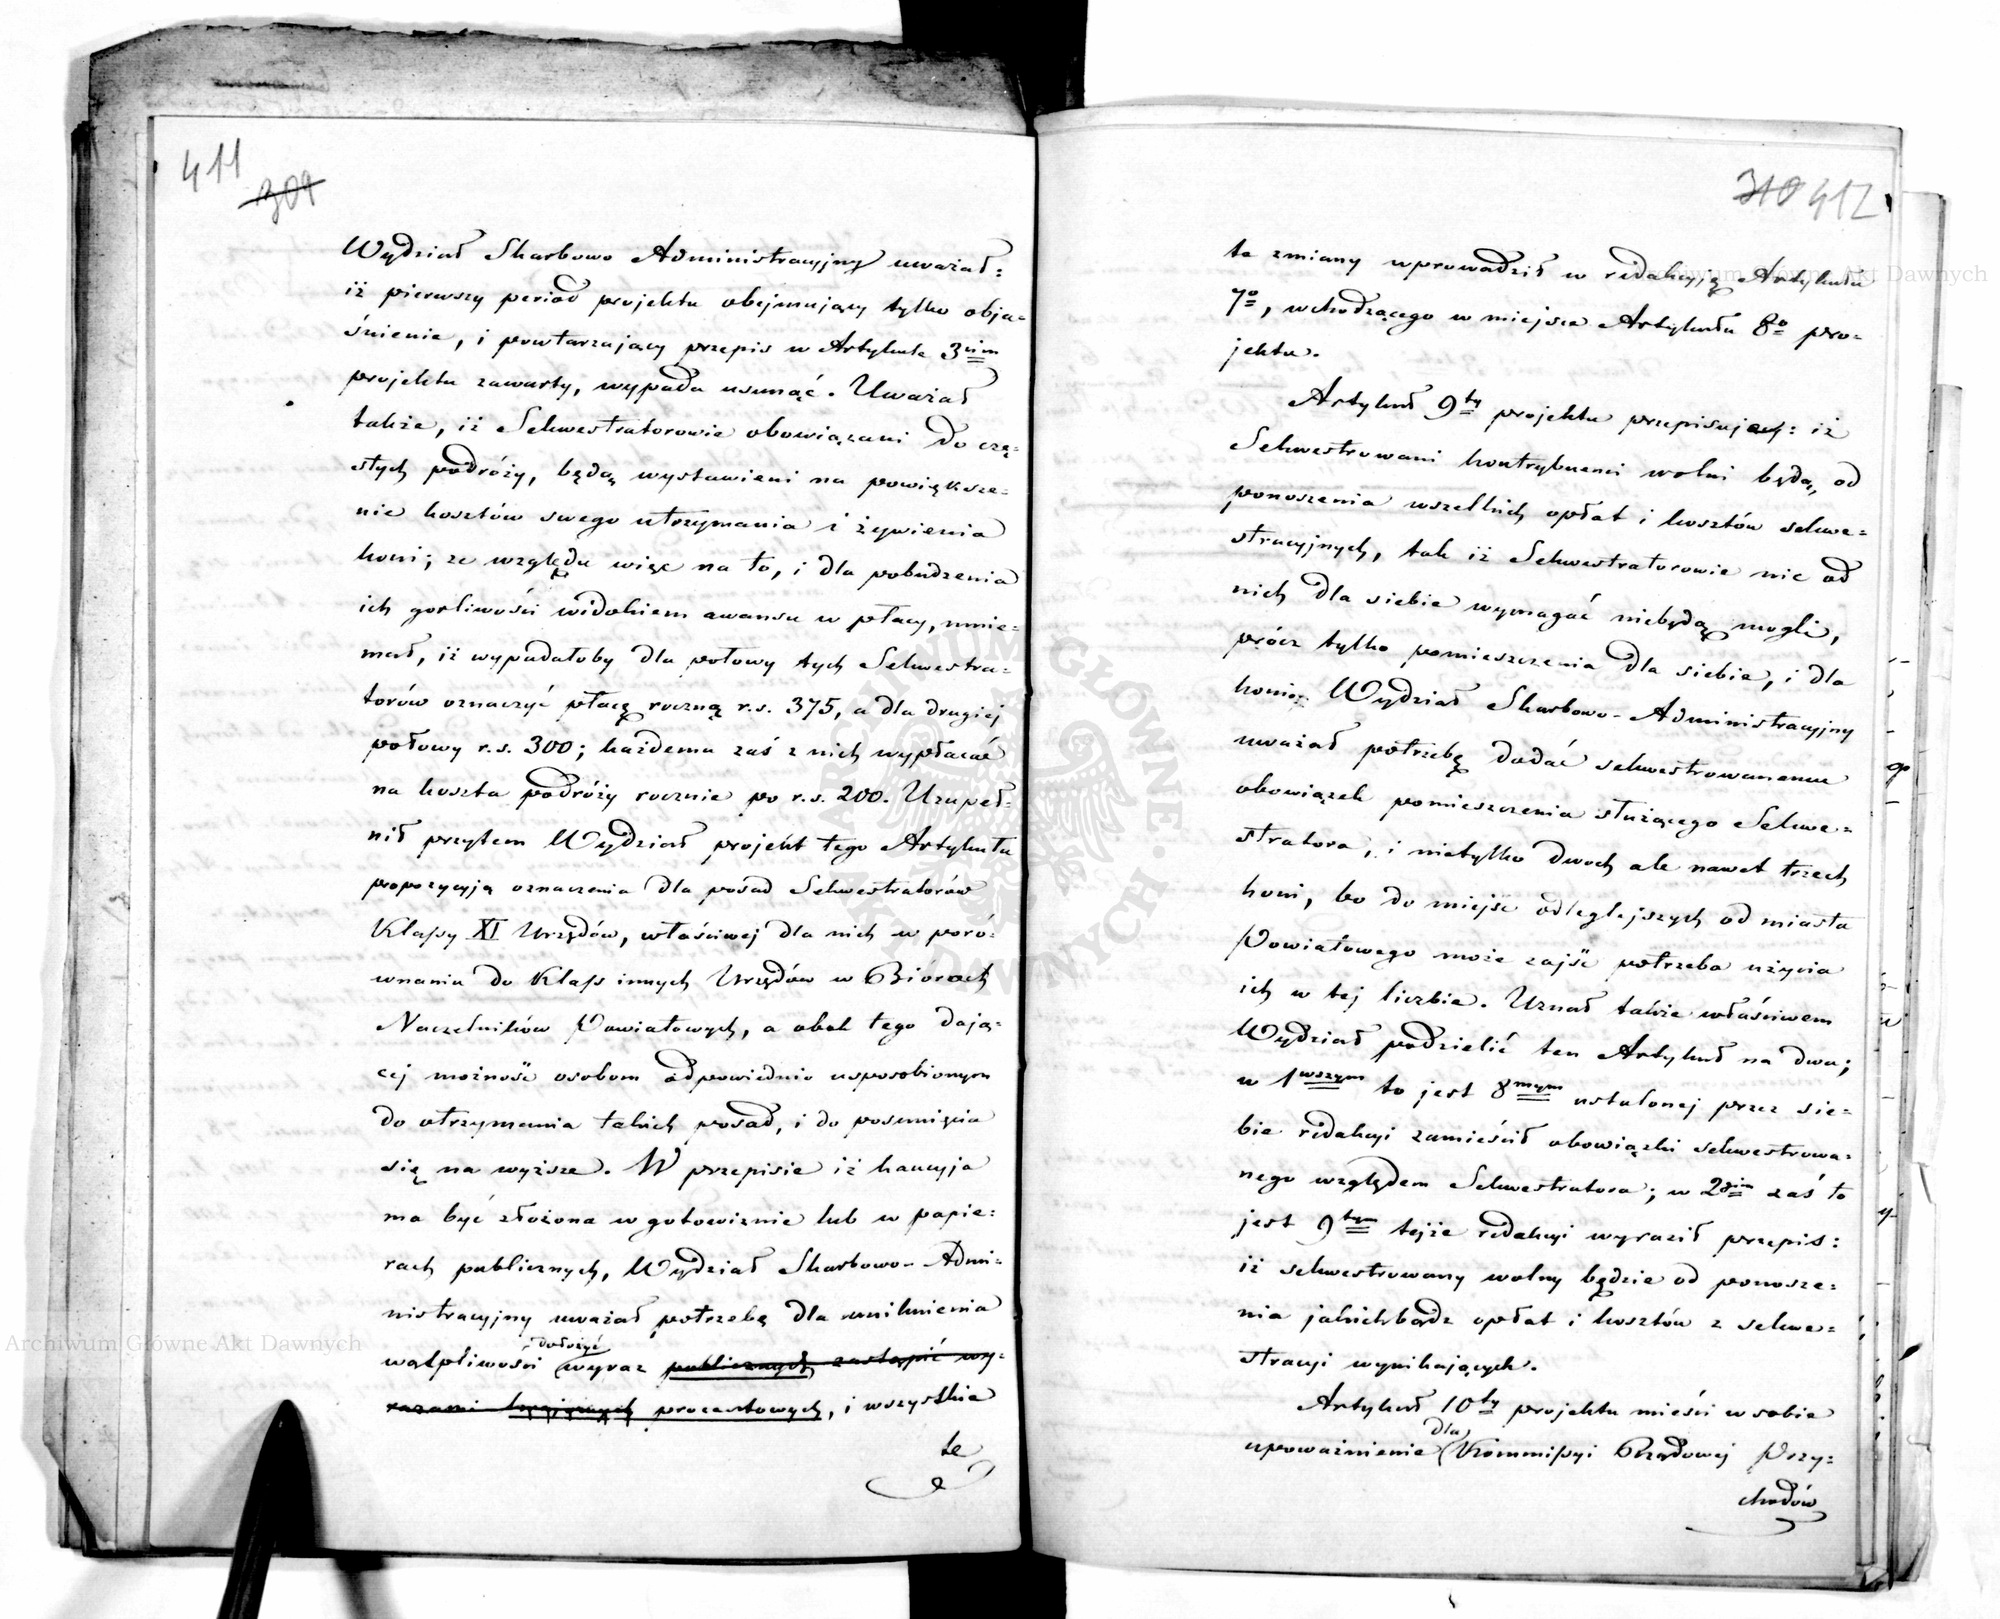 411
309
Wydział Skarbowo Administracyjny uważał:
iż pierwszy period projektu obejmujący tylko obja=
śnienie, i powtarzający przepis w Artykule 3cim
projektu zawarty, wypada usunąć. Uważał
także, iż Sekwestratorowie obowiązani do czę=
stych podróży, będą wystawieni na powiększe=
nie kosztów swego utrzymania i żywienia
koni; ze względu więc na to, i dla pobudzenia
ich gorliwości widokiem awansu w płacy, mnie=
mał, iż wypadałoby dla połowy tych Sekwestra=
torów oznaczyć płacę roczną r.s. 375, a dla drugiej
połowy r.s. 300; każdemu zaś z nich wypłacać
na koszta podróży rocznie po r.s. 200. Uzupeł=
nił przytem Wydział projekt tego Artykułu
propozycyją oznaczenia dla posad Sekwestratorów
Klassy XI Urzędów, właściwej dla nich w poró=
wnaniu do Klass innych Urzędów w Biórach
Naczelników Powiatowych, a obok tego dają=
cej możność osobom odpowiednio usposobionym
do otrzymania takich posad, i do posunięcia
się na wyższe. W przepisie iż kaucyja
ma być złożona w gotowiznie lub w papie=
rach publicznych, Wydział Skarbowo-Admi=
nistracyjny uważał potrzebę dla uniknienia
dołożyć
wątpliwości wyraz publicznych zastąpić wy=
razami procentowych, i wszystkie
te
310 412
te zmiany wprowadził w redakcyją Artykułu
7o, wchodzącego w miejsce Artykułu 8o pro=
jektu.
Artykuł 9ty projektu przepisuje: iż
Sekwestrowani kontrybuenci wolni będą, od
ponoszenia wszelkich opłat i kosztów sekwe=
stracyjnych, tak iż Sekwestratorowie nic od
nich dla siebie wymagać niebędą mogli,
prócz tylko pomieszczenia dla siebie, i dla
koni. Wydział Skarbowo-Administracyjny
uważał potrzebę dodać sekwestrowanemu
obowiązek pomieszczenia służącego Sekwe=
stratora, i nietylko dwoch ale nawet trzech
koni, bo do miejsc odleglejszych od miasta
Powiatowego może zajść potrzeba użycia
ich w tej liczbie. Uznał także właściwem
Wydział podzielić ten Artykuł na dwa;
w 1wszym to jest 8mym ustalonej przez sie=
bie redakcyi zamieścił obowiązki sekwestrowa=
nego względem Sekwestratora; w 2gim zaś to
jest 9tym tejże redakcyi wyraził przepis:
iż sekwestrowany wolny będzie od ponosze=
nia jakichbądź opłat i kosztów z sekwe=
stracyi wynikających.
Artykuł 10ty projektu mieści w sobie
dla
upoważnienie Kommissyi Rządowej Przy=
chodów